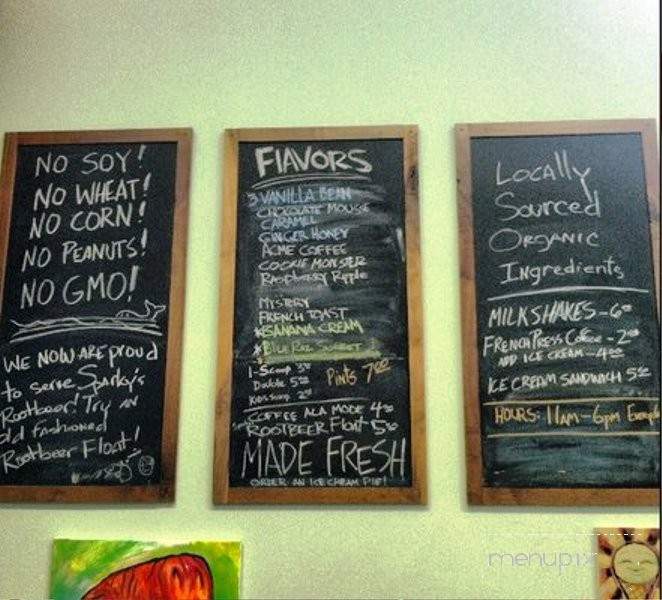 NO SOY!
NO WHEAT!
NO CORN!
NO PEANUTS!
NO GMO!
WE NOW ARE PROUD
to serve Sparky's
Rootbeer! Try an
old fashioned
Rootbeer Float!
FLAVORS
VANILLA BEAN
CHOCOLATE MOUSSE
CARAMEL
GINGER HONEY
ACME COFFEE
COOKIE MONSTER
Raspberry Ripple
MYSTERY
FRENCH TOAST
*BANANA CREAM
1-Scoop 3
Double 5
Kids Scoop 2
Pints 7
COFFEE ALA MODE 4
ROOTBEER Float 5
MADE FRESH
ORDER AN ICE CREAM PIE!
Locally
Sourced
Organic
Ingredients
MILKSHAKES - 6
FRENCH PRESS Coffee - 2
ADD ICE CREAM - 4
ICE CREAM SANDWICH 5
HOURS: 11AM - 6pm
menupix